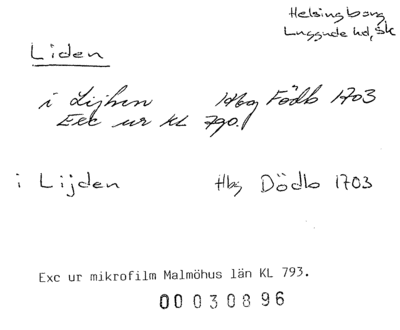 Helsingborg
Luggude hd, Sk
Liden
i Lijhen Hbg Födb 1703
Exc ur KL 790.
i Lijden Hbg Dödb 1703
Exc ur mikrofilm Malmöhus län KL 793.
00030896